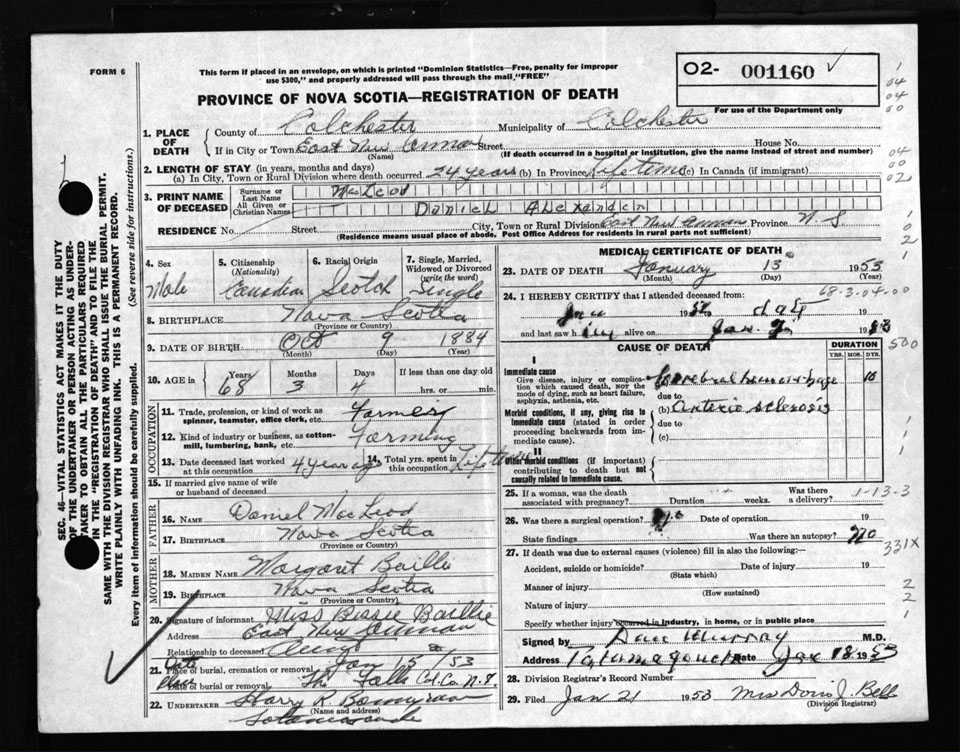 FORM 6
This form if placed in an envelope, on which is printed "Dominion Statistics—Free, penalty for improper
use $300," and properly addressed will pass through the mail "FREE"
O2- 001160
For use of the Department only
PROVINCE OF NOVA SCOTIA—REGISTRATION OF DEATH
1. PLACE OF DEATH
County of Colchester Municipality of Colchester
If in City or Town East New Annan Street House No.
(Name) (If death occurred in a hospital or institution, give the name instead of street and number)
2. LENGTH OF STAY (in years, months and days)
(a) In City, Town or Rural Division where death occurred 54 years (b) In Province Lifetime (c) In Canada (if immigrant)
3. PRINT NAME OF DECEASED
Surname or Last Name MacLeod
All Given or Christian Names Daniel Alexander
RESIDENCE No. Street City, Town or Rural Division East New Annan Province N.S
(Residence means usual place of abode. Post Office Address for residents in rural parts not sufficient)
4. Sex Male
5. Citizenship (Nationality) Canadian
6. Racial Origin Scotch
7. Single, Married, Widowed or Divorced (write the word) Single
8. BIRTHPLACE Nova Scotia
(Province or Country)
9. DATE OF BIRTH Oct 9 1884
(Month) (Day) (Year)
10. AGE in Years 68 Months 3 Days 4 If less than one day old
hrs. or min.
OCCUPATION
11. Trade, profession, or kind of work as spinner, teamster, office clerk, etc. Farmer
12. Kind of industry or business, as cotton-mill, lumbering, bank, etc. Farming
13. Date deceased last worked at this occupation 4 year ago
14. Total yrs. spent in this occupation Lifetime
15. If married give name of wife or husband of deceased
FATHER
16. NAME Daniel MacLeod
17. BIRTHPLACE Nova Scotia
(Province or Country)
MOTHER
18. MAIDEN NAME Margaret Baillie
19. BIRTHPLACE Nova Scotia
(Province or Country)
20. Signature of informant Miss Bessie Baillie
Address East New Annan
Relationship to deceased
21. Date Place of burial, cremation or removal Jan 15 /53
Place Date of burial or removal The Falls Col. Co. N.S.
22. UNDERTAKER Harry R. Bonnyman
(Name and address)
Tatamagouche
MEDICAL CERTIFICATE OF DEATH
23. DATE OF DEATH January 13 1953
(Month) (Day) (Year)
68-3-04-00
24. I HEREBY CERTIFY that I attended deceased from:
Jan 19 19
and last saw h im alive on Jan. 19 53
CAUSE OF DEATH DURATION
YRS. MOS. DYS.
I
Immediate cause
Give disease, injury or complication which caused death, NOT the mode of dying, such as heart failure, asphyxia, asthenia, etc.
(a) Cerebral hemorrhage 10
due to
Morbid conditions, if any, giving rise to immediate cause (stated in order proceeding backwards from immediate cause).
(b) Arterio sclerosis
due to
(c)
II
Other morbid conditions (if important) contributing to death but not causally related to immediate cause.
25. If a woman, was the death associated with pregnancy? Duration weeks. Was there a delivery?
1-13-3
26. Was there a surgical operation? No Date of operation 19
State findings Was there an autopsy? No
331X
27. If death was due to external causes (violence) fill in also the following:—
Accident, suicide or homicide? Date of injury 19
(State which)
Manner of injury
(How sustained)
Nature of injury
Specify whether injury occurred in industry, in home, or in public place
Signed by Dan Murray M.D.
Address Tatamagouche Date Jan 18 1953
28. Division Registrar's Record Number
29. Filed Jan 21 1953 Mrs Doris J. Bell
(Division Registrar)
SEC. 46—VITAL STATISTICS ACT MAKES IT THE DUTY
OF THE UNDERTAKER OR PERSON ACTING AS UNDER-
TAKER TO OBTAIN ALL THE PARTICULARS REQUIRED
IN THE "REGISTRATION OF DEATH" AND TO FILE THE
SAME WITH THE DIVISION REGISTRAR WHO SHALL ISSUE THE BURIAL PERMIT.
WRITE PLAINLY WITH UNFADING INK. THIS IS A PERMANENT RECORD.
Every item of information should be carefully supplied. (See reverse side for instructions.)